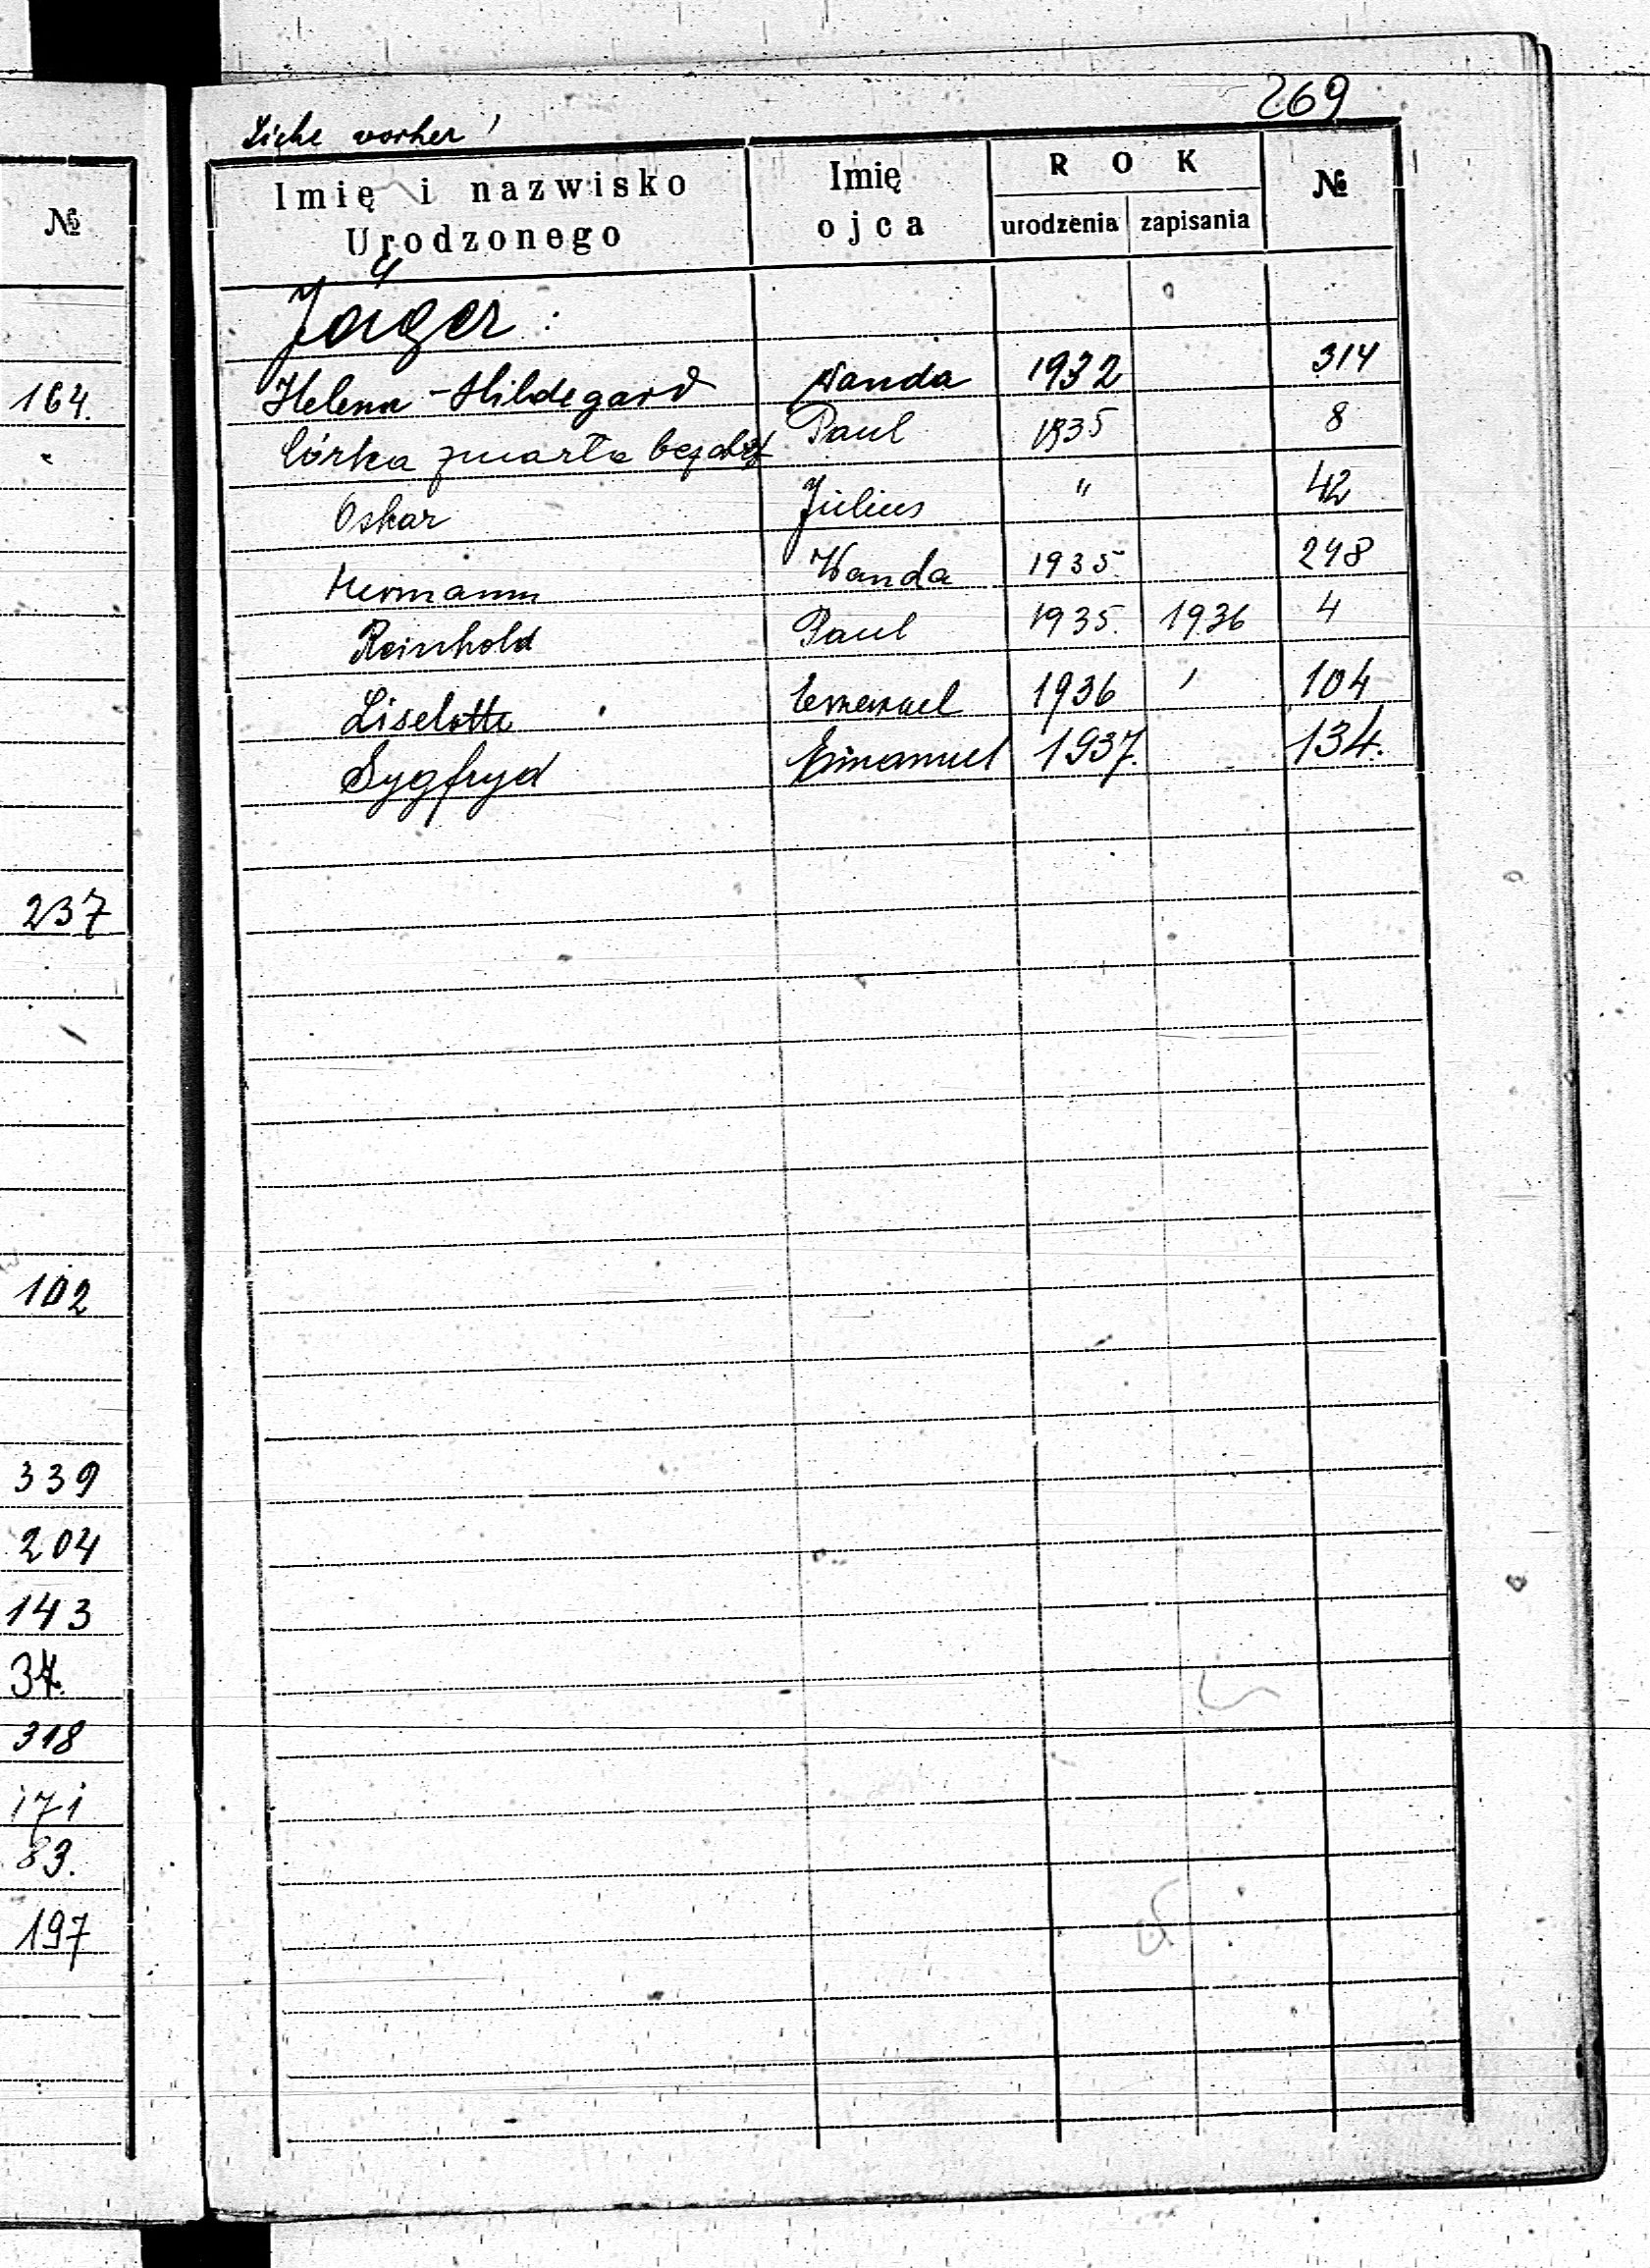 №
164.
"
237
102
339
204
143
34.
318
171
83.
197
269
Siehe vorher!
Imię i nazwisko Urodzonego
Imię ojca
ROK
urodzenia
zapisania
№
Jäger:
Helena-Hildegard Wanda 1932 314
Córka zmarła Paul 1935 8
Oskar Julius " 42
Hermann Wanda 1935. 248
Reinhold Paul 1935. 1936 4
Liselotte Emanuel 1936 " 104
Sygfryd Emanuel 1937. 134.